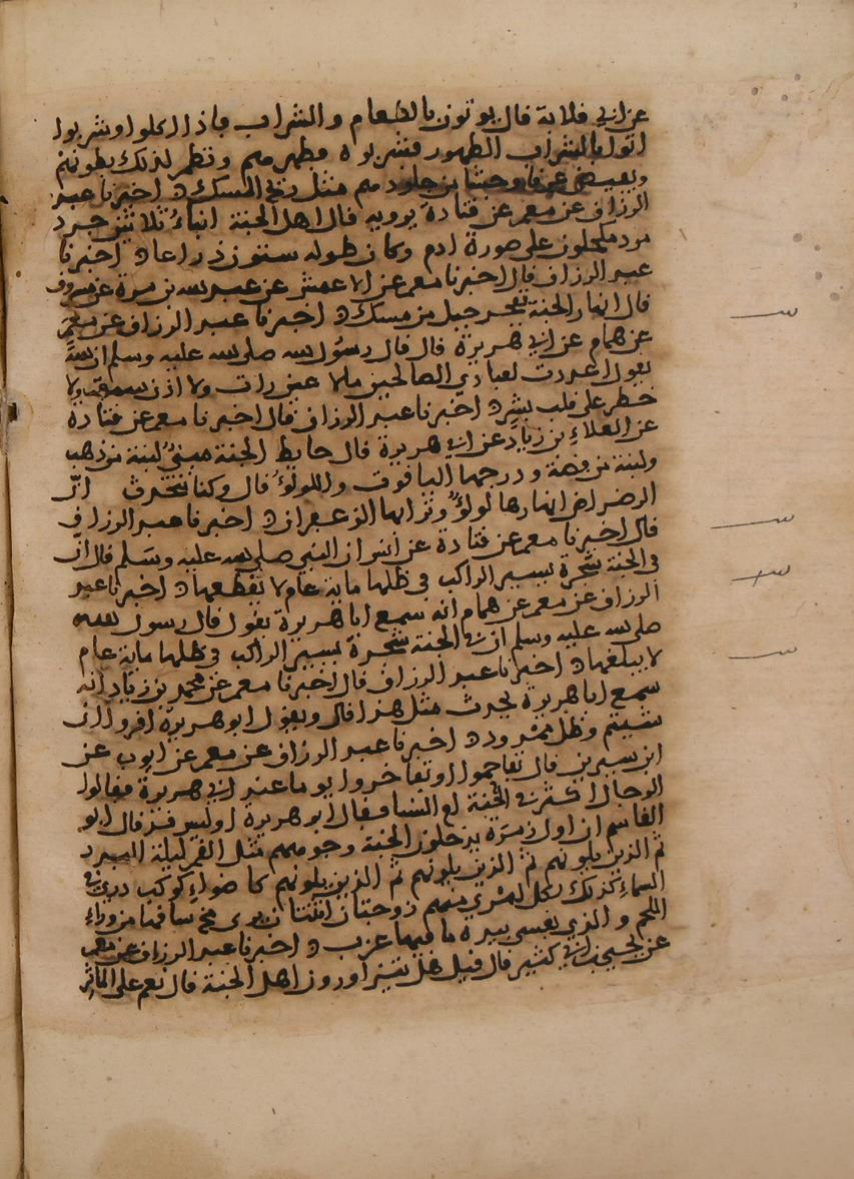 عن ابي قلابة قال يوتون بالطعام والشراب فاذا اكلوا وشربوا
اتوا بالشراب الطهور فشربوه فطهرهم وتضمر لذلك بطونهم
ويفيض عرقا وجشا من جلودهم مثل ريح المسك اخبرنا عبد
الرزاق عن معمر عن قتادة يرويه قال اهل الجنة ابناء ثلاثين جرد
مرد مكحلون على صورة ادم وكان طوله ستون ذراعا اخبرنا
عبد الرزاق قال اخبرنا معمر عن الاعمش عن عبد الله بن مرة عن مسروق
قال انهار الجنة تفجر جبل من مسك اخبرنا عبد الرزاق عن معمر
عن همام عن ابي هريرة قال قال رسول الله صلى الله عليه وسلم ان الله
يقول اعددت لعبادي الصالحين ما لا عين رات ولا اذن سمعت ولا
خطر على قلب بشر اخبرنا عبد الرزاق قال اخبرنا معمر عن قتادة
عن العلاء بن زياد عن ابي هريرة قال حايط الجنة مبني لبنة من ذهب
ولبنة من فضة ودرجها الياقوت واللولو قال وكنا نتحدث ان
الرضراض انهارها لولؤ وترابها الزعفران اخبرنا عبد الرزاق
قال اخبرنا معمر عن قتادة عن انس ان النبي صلى الله عليه وسلم قال ان
في الجنة شجرة يسير الراكب في ظلها ماية عام لا يقطعها اخبرنا عبد
الرزاق عن معمر عن همام انه سمع ابا هريرة يقول قال رسول الله
صلى الله عليه وسلم ان في الجنة شجرة يسير الراكب في ظلها ماية عام
لا يبلغها اخبرنا عبد الرزاق قال اخبرنا معمر عن محمد بن زياد انه
سمع ابا هريرة يحدث مثل هذا قال ويقول ابو هريرة اقروا ان
شيتم وظل ممدود اخبرنا عبد الرزاق عن معمر عن ايوب عن
ابن سيرين قال تفاخموا او تفاخروا يوما عند ابي هريرة فقالوا
الرجال اكثر في الجنة ام النساء فقال ابو هريرة اوليس قد قال ابو
القاسم ان اول زمرة يدخلون الجنة وجوههم مثل القمر ليلة البدر
ثم الذين يلونهم ثم الذين يلونهم ثم الذين يلونهم كاضواء كوكب دري في
السماء كذلك لكل امرئ منهم زوجتان اثنتان يرى مخ ساقهما من وراء
اللحم والذي نفسي بيده ما فيها عزب اخبرنا عبد الرزاق عن معمر
عن يحيى بن ابي كثير قال قيل هل يتزاورون اهل الجنة قال نعم على